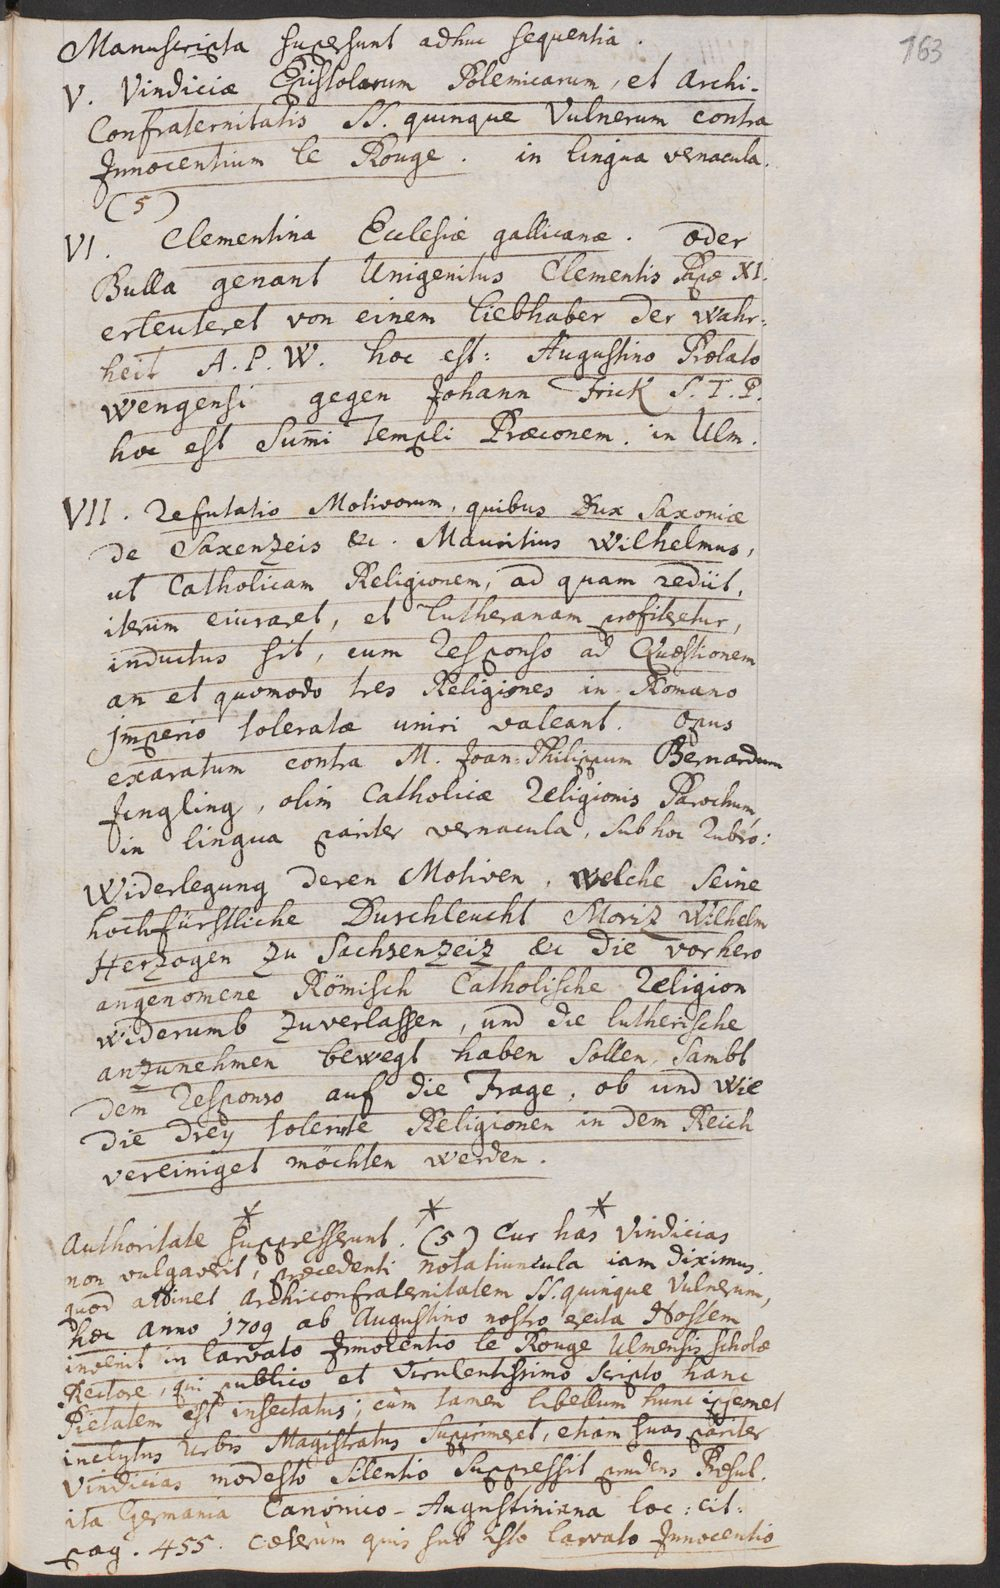 163
Manuscripta supersunt adhuc sequentia.
V. Vindiciæ Epistolarum Polemicarum, et Archi-
Confraternitatis SS. quinque Vulnerum contra
Innocentium le Rouge. in lingua vernacula.
(5)
VI. Clementina Ecclesiæ gallicanæ. oder
Bulla genant Unigenitus Clementis Papæ XI.
erleuteret von einem liebhaber der wahr=
heit A. P. W. hoc est: Augustino Prælato
wengensi gegen Johann Frick S. T. P.
hoc est Sum̄i Templi Præconem. in Ulm.
VII. Refutatio Motivorum, quibus Dux Saxoniæ
de Saxenzeis &c. Mauritius Wilhelmus,
ut Catholicam Religionem, ad quam rediit,
iterum eiuraret, et lutheranam profiteretur,
inductus sit, cum Responso ad Quæstionem
an et quomodo tres Religiones in Romano
Imperio toleratæ uniri valeant. Opus
exaratum contra M. Joan: Philippum Bernardum
Jingling, olim Catholicæ Religionis Parochum,
in lingua pariter vernacula, sub hoc Rubro:
Widerlegung deren Motiven, welche seine
hochfürstliche Durchleucht Moriz Wilhelm
Herzogen zu Sachsenzeiz &c die vorhero
angenomene Römisch Catholische Religion
widerumb zuverlassen, und die lutherische
anzunehmen bewegt haben sollen, sambt
dem Responso auf die Frage, ob und wie
die drey tolerirte Religionen in dem Reich
vereiniget möchten werden.
* * *
Authoritate suppresserunt. (5) Cur has Vindicias
non vulgaverit, præcedenti notatiuncula iam diximus.
quod attinet Archiconfraternitatem SS. quinque Vulnerum,
hæc anno 1709 ab Augustino nostro erecta Hostem
invenit in larvato Innocentio le Rouge Ulmensis scholæ
Rectore, qui publico et virulentissimo scripto hanc
Pietatem est insectatus; cùm tamen libellum hunc ipsemet
inclytus Urbis Magistratus supprimeret, etiam suas pariter
Vindicias modesto silentio suppressit prudens Præsul.
ita Germania Canonico-Augustiniana loc: cit:
pag. 455. cæterùm quis sub isto larvato Innocentio